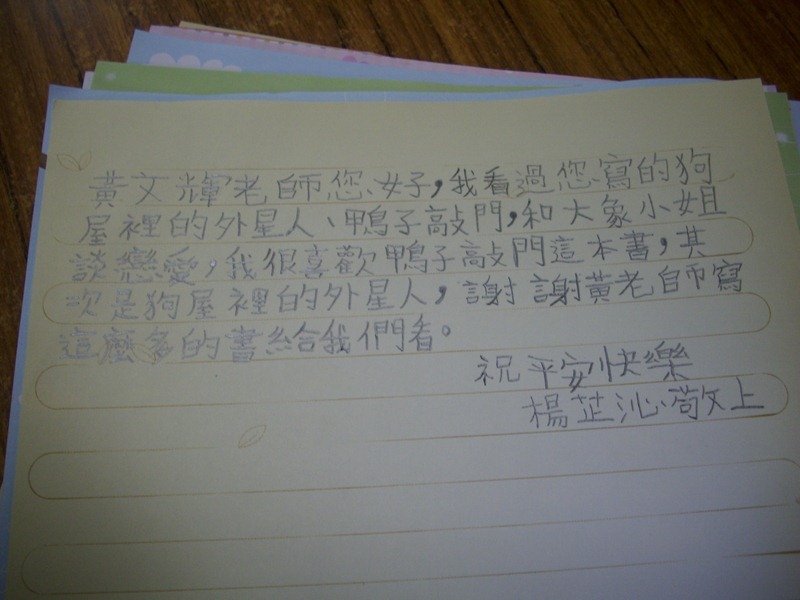 黃文輝老師您好,我看過您寫的狗
屋裡的外星人、鴨子敲門,和大象小姐
談戀愛,我很喜歡鴨子敲門這本書,其
次是狗屋裡的外星人,謝謝黃老師寫
這麼多的書給我們看。
祝平安快樂
楊芷沁敬上